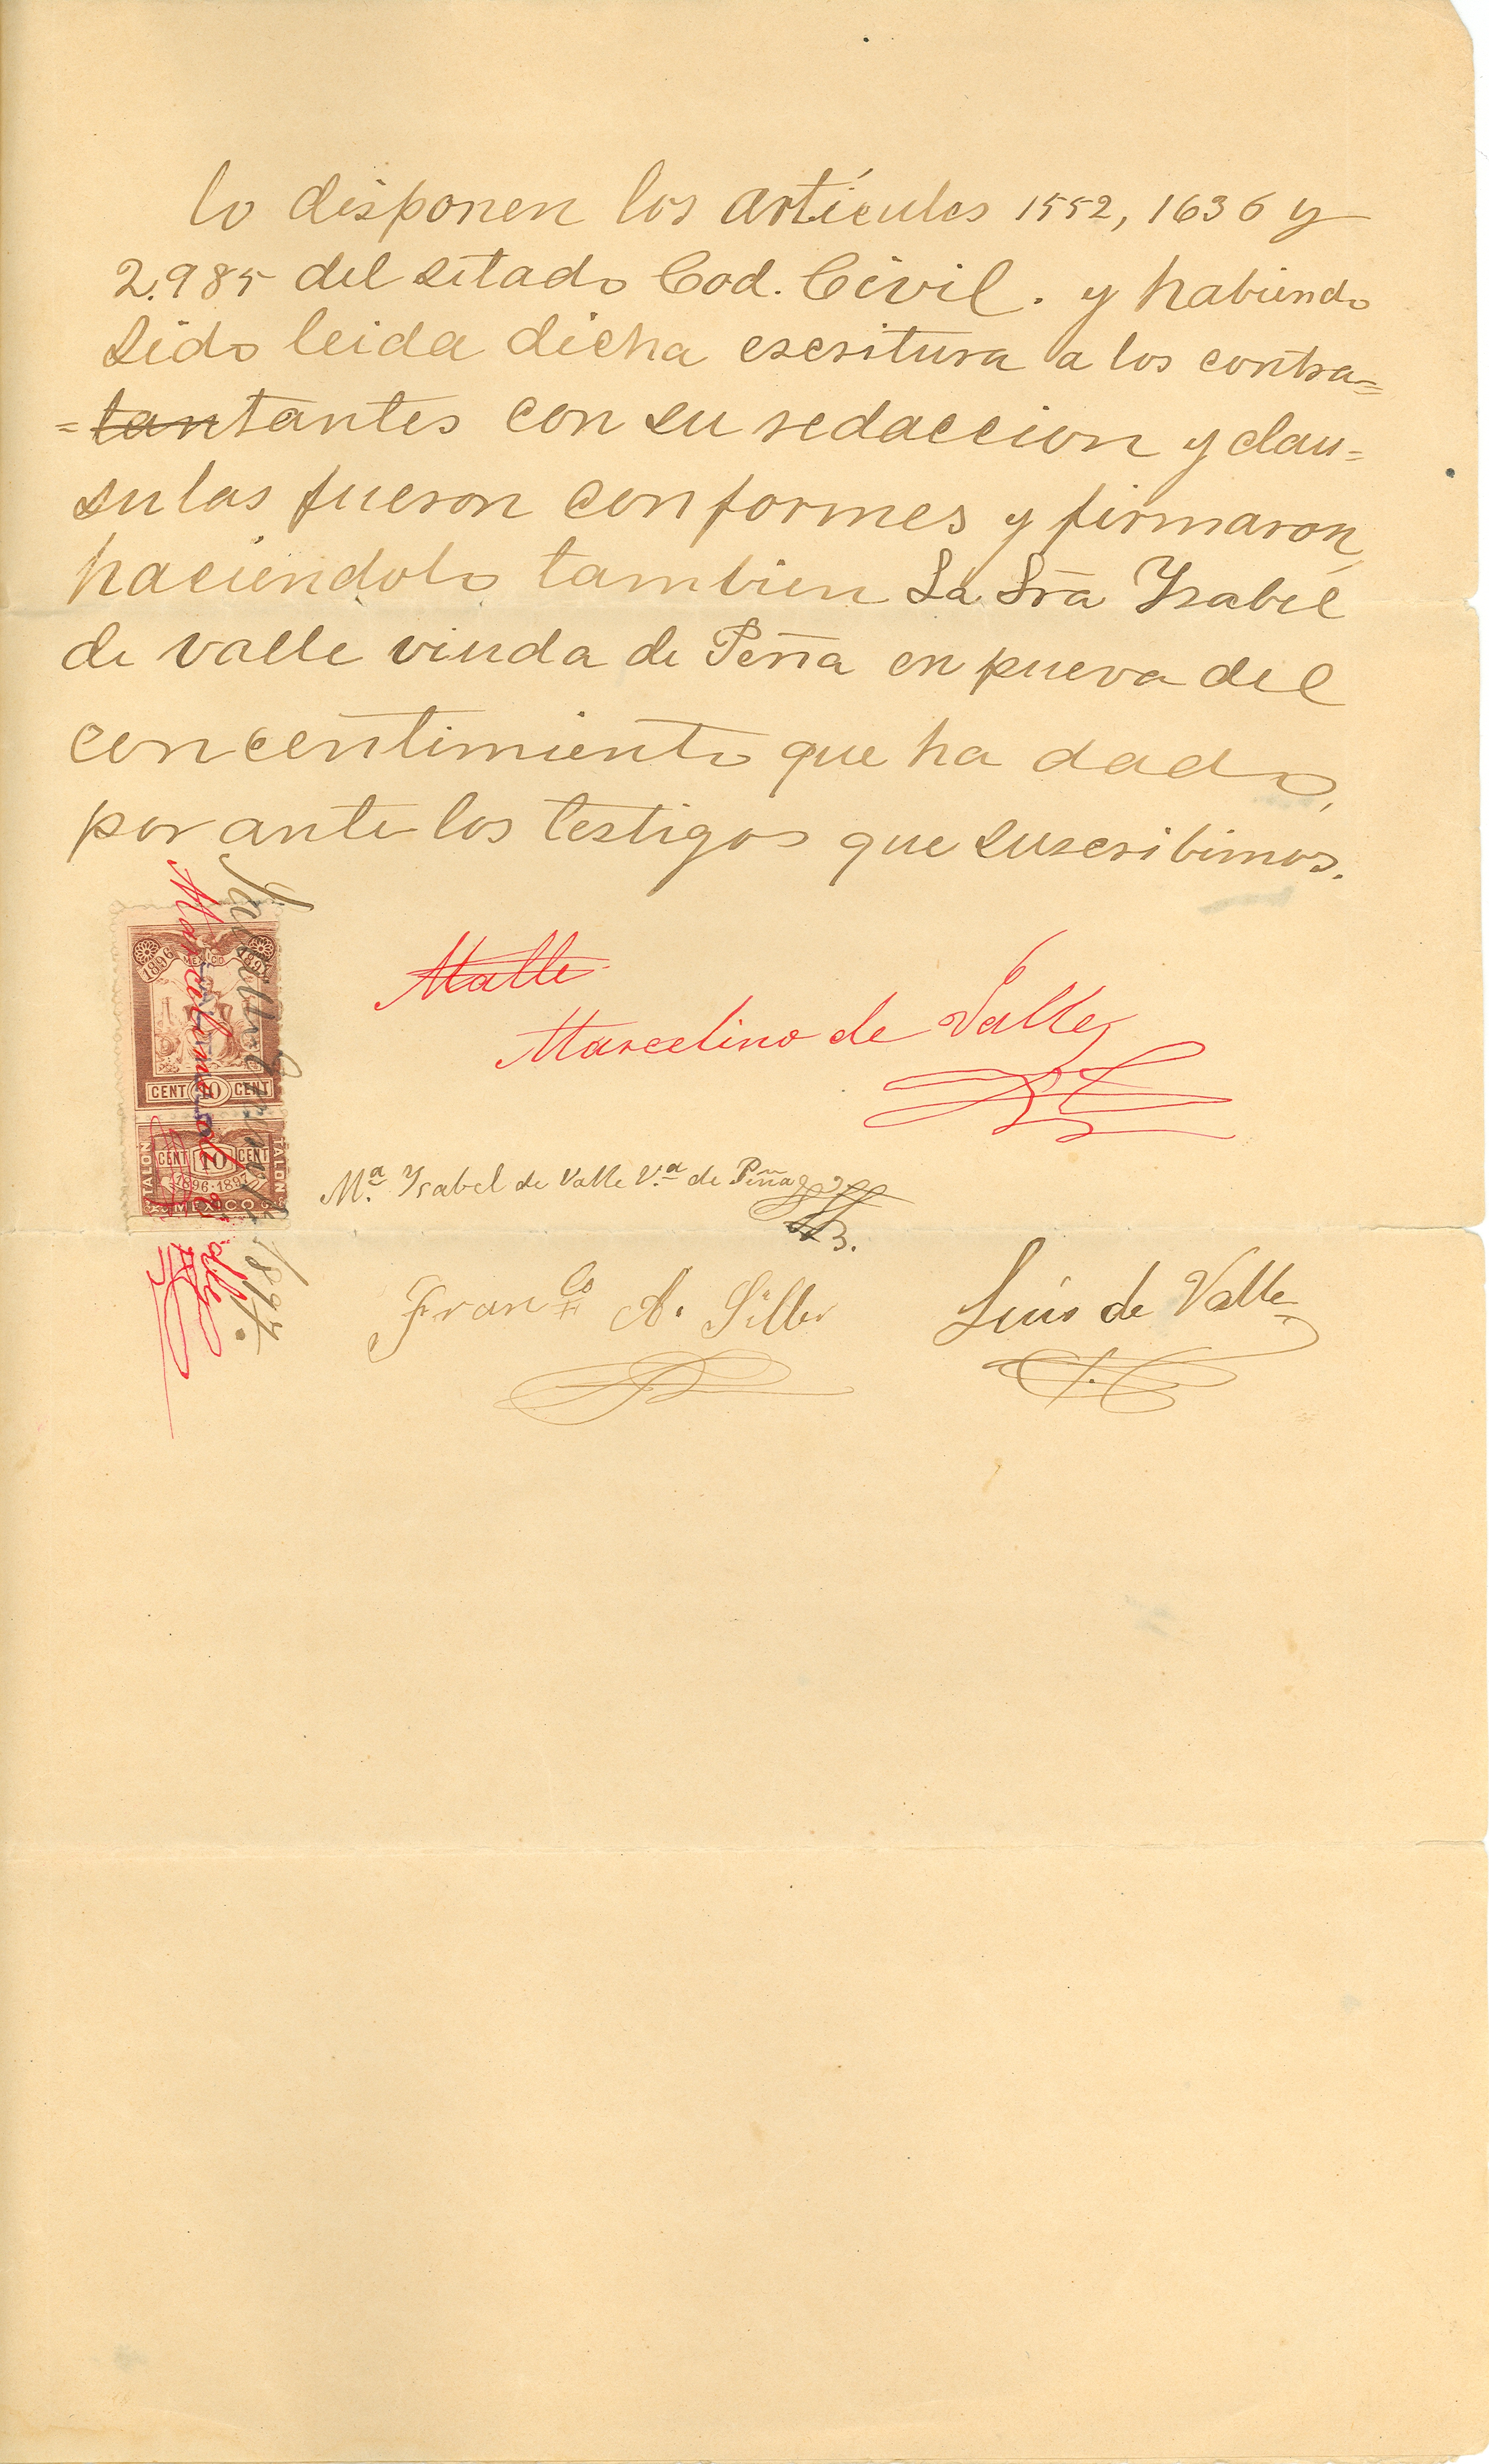 lo disponen los artículos 1552, 1636 y
2.985 del sitado Cod. Civil. y habiendo
sido leida dicha escritura a los contra=
=tantantes con su redaccion y clau=
sulas fueron conformes y firmaron,
haciendolo tambien La Sra Ysabel
de valle viuda de Peña en pueva del
concentimiento que ha dado,
por ante los testigos que suscribimos.
1896 MEXICO 1897
CENT 10 CENT
TALON CENT 10 CENT TALON
1896-1897
MEXICO
Marcelino de Valle
1897.
Malle
Marcelino de Valle
Ma. Ysabel de Valle V.a de Peña
Franco A. Siller
Luis de Valle